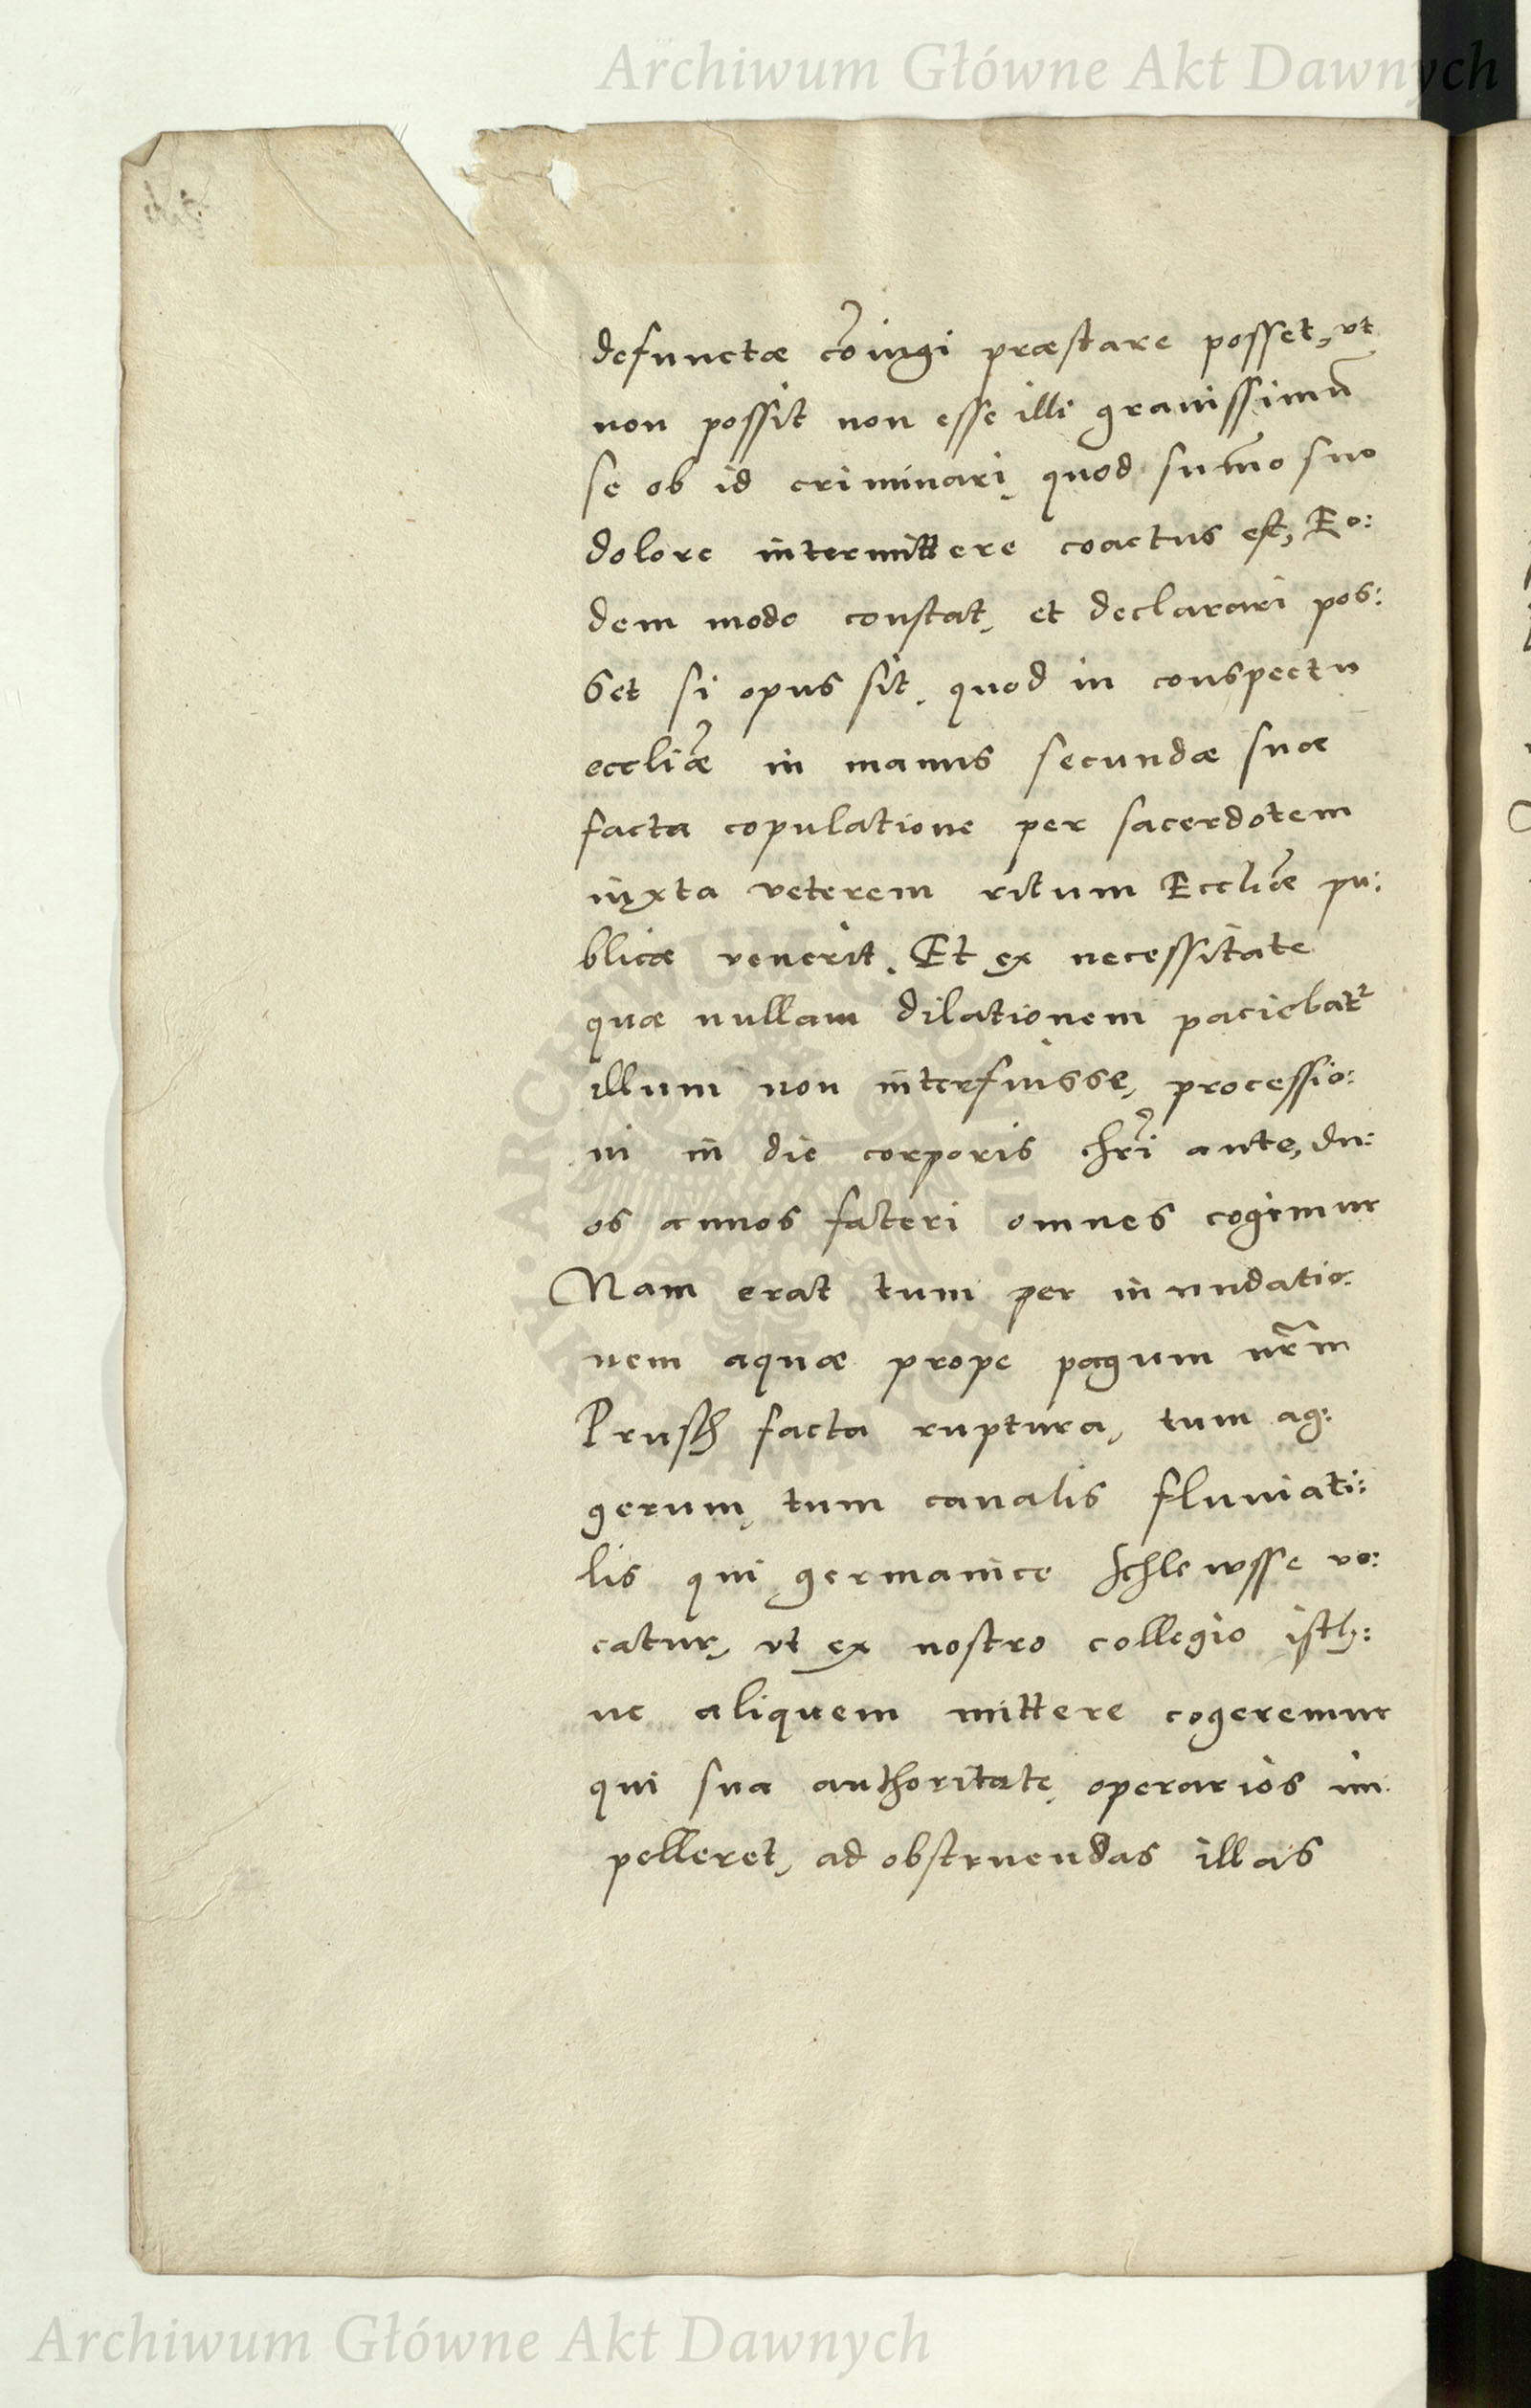 Archiwum Główne Akt Dawnych
defunctæ cõiugi præstare posset, vt
non possit non esse illi grauissimũ
se ob id criminari, quod sum̃o suo
dolore intermittere coactus est, Eo:
dem modo constat, et declarari pos:
set si opus sit, quod in conspectu
eccliæ̃ in manus secundæ suæ
facta copulatione per sacerdotem
iuxta veterem ritum Eccliæ̃ pu:
blicæ venerit. Et ex necessitate
quæ nullam dilationem paciebatr
illum non interfuisse, processio:
ni in die corporis chrĩ ante, du:
os annos fateri omnes cogimur
Nam erat tum per inundatio:
nem aquæ prope pagum nr̃m
Prusch facta ruptura, tum ag:
gerum, tum canalis fluuiati:
lis qui germanice schlewsse vo:
catur, vt ex nostro collegio isth:
uc aliquem mittere cogeremur
qui sua authoritate, operarios im:
pelleret, ad obstruendas illas
Archiwum Główne Akt Dawnych